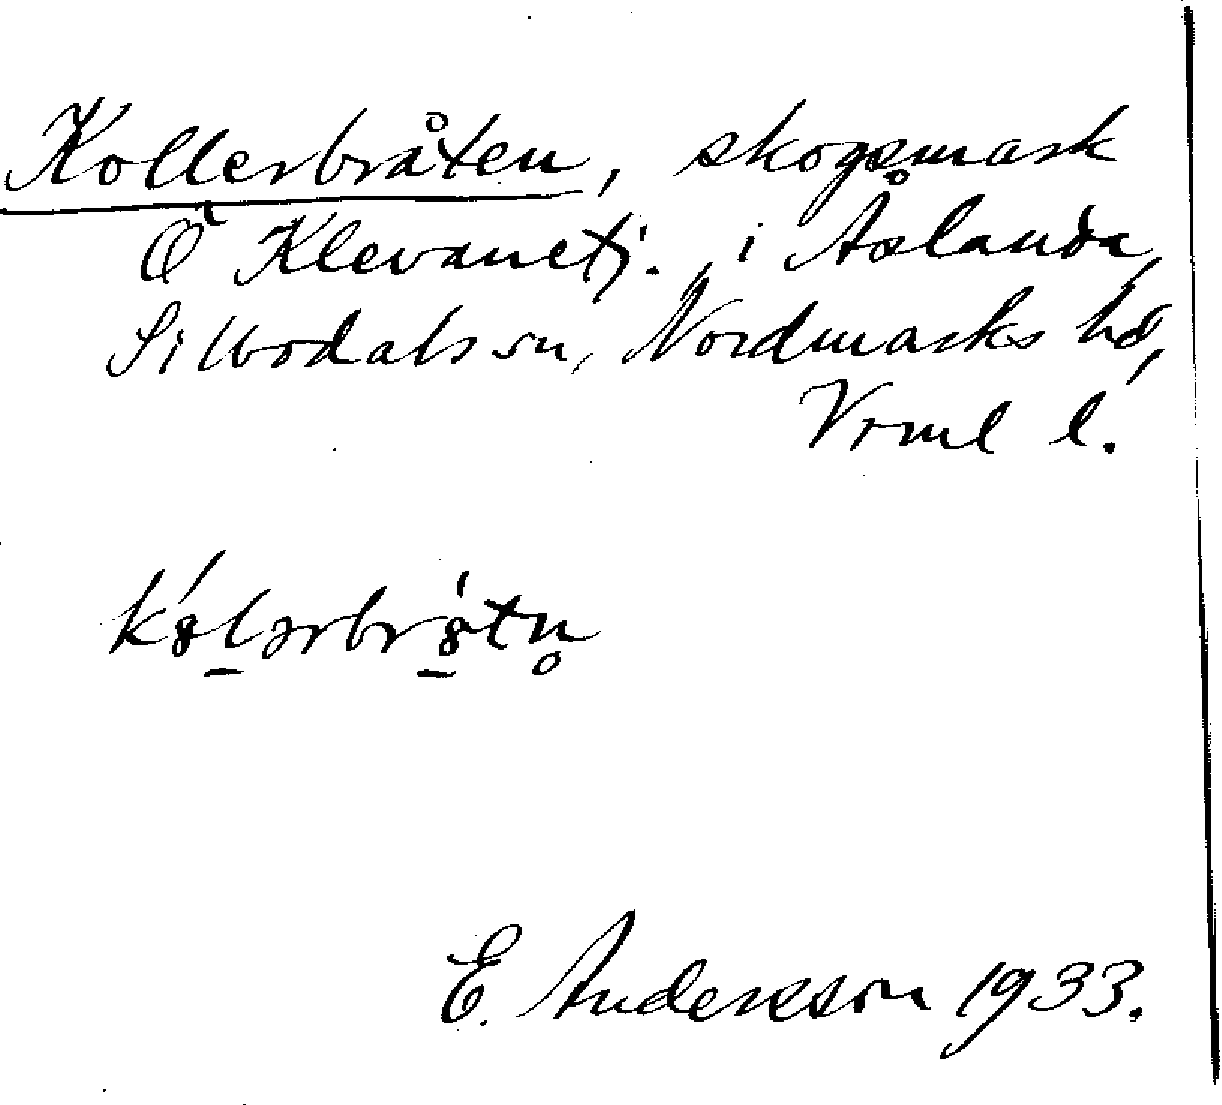 Kollerbråten, skogsmark
Ö Klevanetj. i Åslanda,
Silbodals sn, Nordmarks hd,
Vrml l.
E. Andersson 1933.